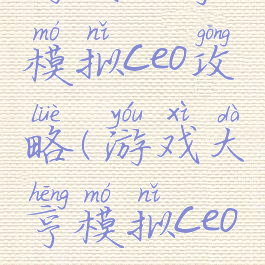 mó nǐ gōng
模拟Ceo攻
lüè yóu xì dà
略(游戏大
hēng mó nǐ
亨模拟Ceo